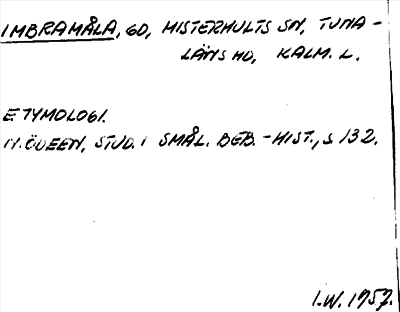 IMBRAMÅLA, GD, MISTERHULTS SN, TUNA-
LÄNS HD, KALM. L.
ETYMOLOGI.
N. ÖDEEN, STUD. I SMÅL. BEB.-HIST., S 132.
I.W. 1957.